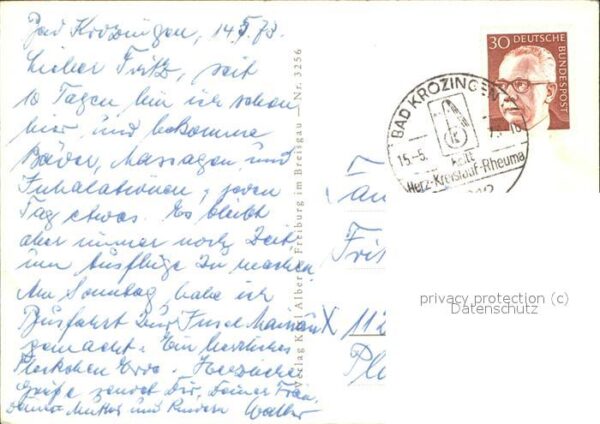 Bad Krozingen, 14.5.73
Lieber Fritz, seit
10 Tagen bin ich schon
hier und bekomme
Bäder, Massagen und
Inhalationen, jeden
Tag etwas. Es bleibt
aber immer noch Zeit
um Ausflüge zu machen.
Am Sonntag habe ich
Busfahrt zur Insel Mainau
gemacht. Ein herrliches
Fleckchen Erde. Herzliche
Grüße sendet Dir, Deiner Frau,
Deiner Mutter und Kindern Walter
Verlag Karl Alber Freiburg im Breisgau — Nr. 3256
30 DEUTSCHE BUNDESPOST
BAD KROZINGEN
15.-5.
heilt
Herz-Kreislauf-Rheuma
Fri
X 112
privacy protection (c)
Datenschutz